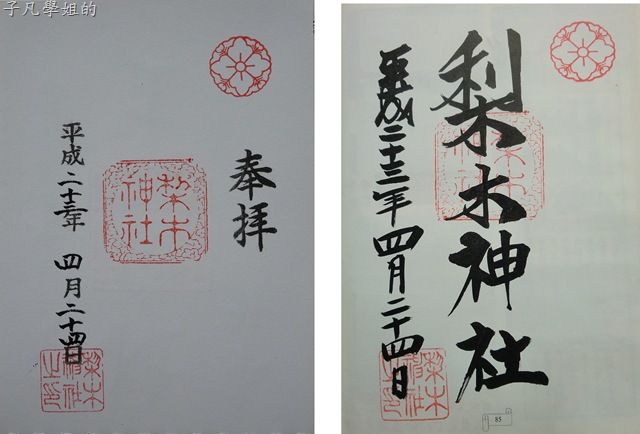 子凡學姐的
奉拝
梨木
神社
平成二十三年 四月二十四日
梨木
神社
之印
梨木神社
梨木
神社
平成二十三年四月二十四日
梨木
神社
之印
85